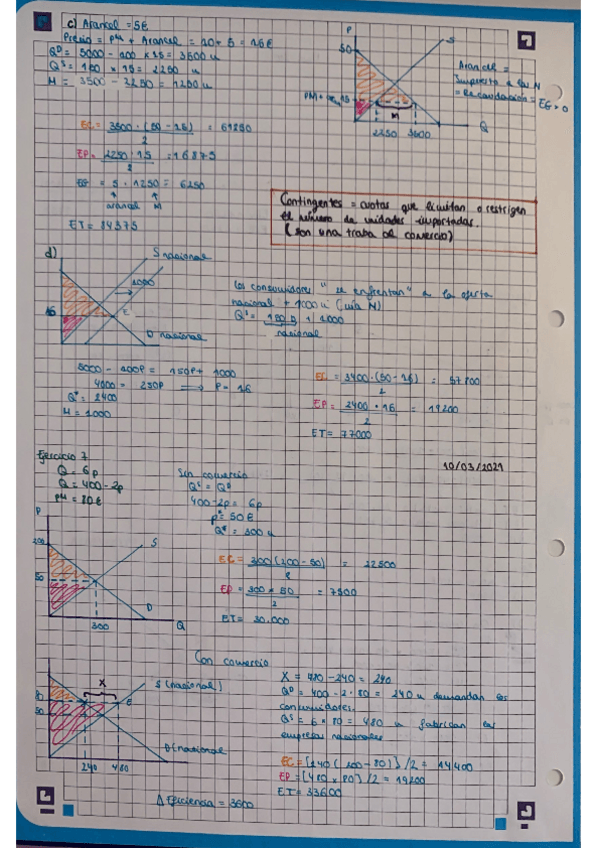 c) Arancel = 5€
Precio = pᴹ + Arancel = 10 + 5 = 15€
Qᴰ = 5000 - 100 × 15 = 3500 u
Qˢ = 150 × 15 = 2250 u
M = 3500 - 2250 = 1250 u
P
50
S
Arancel =
Impuesto a la M
= Recaudación = EG > 0
15
M
Q
2250 3500
EC = 3500 · (50 - 15) = 61250
2
EP = 2250 · 15 = 16875
2
EG = 5 · 1250 = 6250
arancel M
ET = 84375
Contingentes = cuotas que limitan o restrigen
el número de unidades importadas.
(son una traba al comercio)
d)
S nacional
1000
16
E
D nacional
Los consumidores "se enfrentan" a la oferta
nacional + 1000 u (vía M)
Qˢ = 150 p + 1000
nacional
5000 - 100P = 150P + 1000
4000 = 250P ⟹ P = 16
Qˢ = 2400
M = 1000
EC = 3400 · (50 - 16) = 57800
2
EP = 2400 · 16 = 19200
2
ET = 77000
Ejercicio 7
10/03/2021
Q = 6p
Q = 400 - 2p
pᴹ = 80€
Sin comercio
Qˢ = Qᴰ
400 - 2p = 6p
p* = 50€
Q* = 300 u
P
200
S
50
D
300
Q
EC = 300 (200 - 50) = 22500
2
EP = 300 × 50 = 7500
2
ET = 30.000
Con comercio
X
S (nacional)
80
50
E
D (nacional)
240 480
X = 480 - 240 = 240
Qᴰ = 400 - 2 · 80 = 240 u demandan los
consumidores.
Qˢ = 6 × 80 = 480 u fabrican las
empresas nacionales
EC = (240 (200 - 80)) /2 = 14400
EP = (480 × 80) /2 = 19200
ET = 33600
Δ Eficiencia = 3600